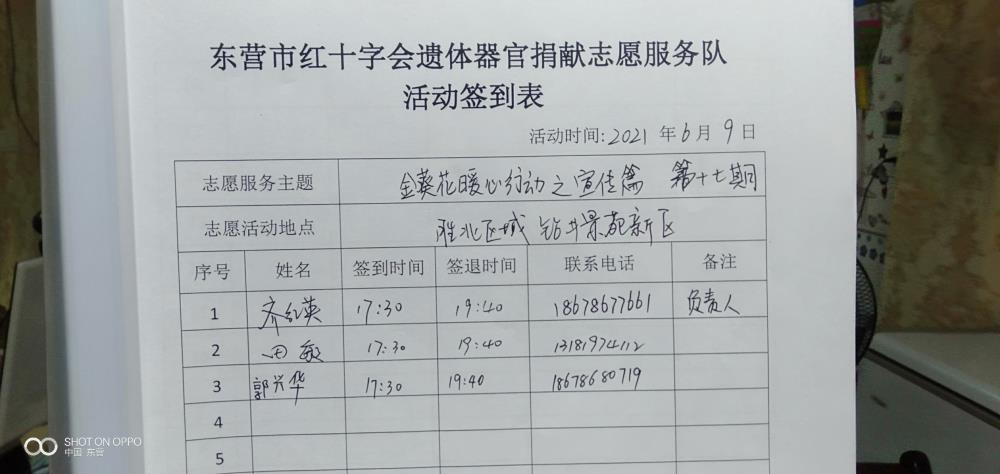 东营市红十字会遗体器官捐献志愿服务队
活动签到表
活动时间: 2021 年 6 月 9 日
志愿服务主题 金葵花暖心行动之宣传篇 第十七期
志愿活动地点 胜北区域 钻井景苑新区
序号 姓名 签到时间 签退时间 联系电话 备注
1 齐红英 17:30 19:40 18678677661 负责人
2 田敏 17:30 19:40 13181974112
3 郭兴华 17:30 19:40 18678680719
4
5
SHOT ON OPPO
中国 东营